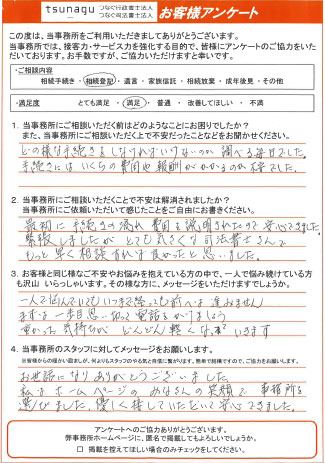 tsunagu つなぐ行政書士法人 つなぐ司法書士法人 お客様アンケート
この度は、当事務所をご利用いただきましてありがとうございます。
当事務所では、接客力・サービス力を強化する目的で、皆様にアンケートのご協力をいた
だいております。お手数ですが、ご協力いただけますと幸いです。
・ご相談内容
相続手続き・相続登記・遺言・家族信託・相続放棄・成年後見・その他
・満足度
とても満足・満足・普通・改善してほしい・不満
1. 当事務所にご相談いただく前はどのようなことにお困りでしたか?
また、当事務所にご相談いただく上で不安だったことなどをお聞かせください。
どの様な手続きをしなければいけないのか 調べる毎日でした。
手続きにはいくらの費用や報酬がかかるのか不安でした。
2. 当事務所にご相談いただくことで不安は解消されましたか?
当事務所にご依頼いただいて感じたことをご自由にお書きください。
最初に手続きの流れ 費用を説明されたので安心でました。
緊張しましたが とても気さくな司法書士さんで
もっと早く相談すれば良かったと思いました。
3. お客様と同じ様なご不安やお悩みを抱えている方の中で、一人で悩み続けている方
も沢山 いらっしゃいます。その様な方に、メッセージをいただけますでしょうか。
一人で悩んでいても いつまで経っても前へは進みません
まずは一歩思い切って電話をかけましょう
重かった気持ちが どんどん軽くなっていきます
4. 当事務所のスタッフに対してメッセージをお願いします。
※皆様からの暖かい励ましが、何よりもスタッフのやる気と自信に繋がります。簡単で結構ですので、ご協力をお願いします。
お世話になりありがとうございました。
私はホームページのみなさんの笑顔で 事務所を
選びました。優しく接していただいて安心できました。
アンケートへのご協力ありがとうございます。
弊事務所ホームページに、匿名で掲載してもよろしいでしょうか。
□ 掲載を控えてほしい場合のみチェックをしてください。